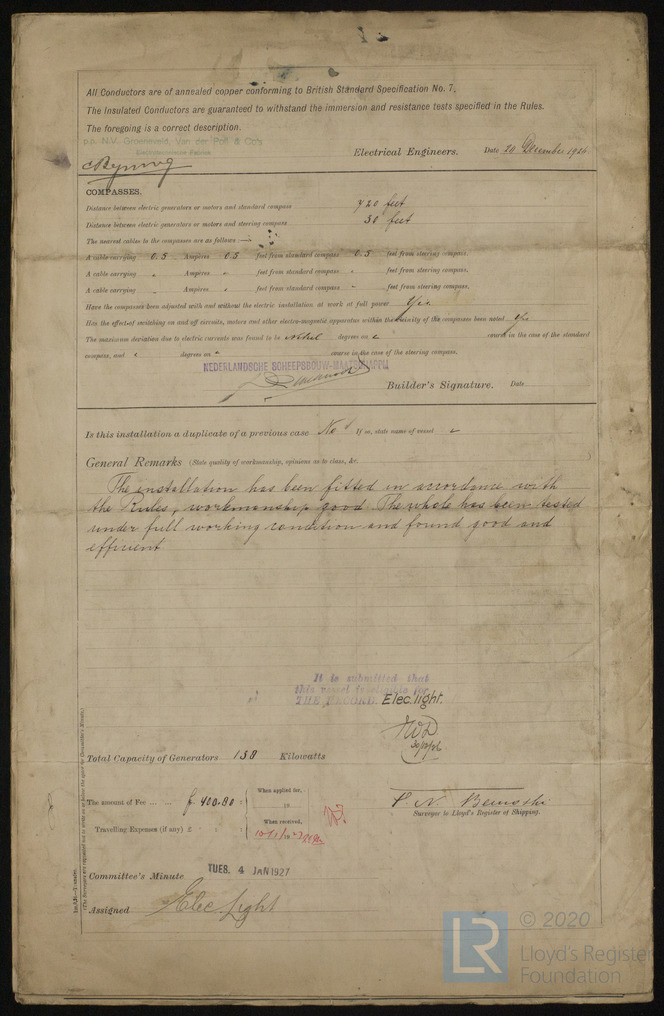 All Conductors are of annealed copper conforming to British Standard Specification No. 7.
The Insulated Conductors are guaranteed to withstand the immersion and resistance tests specified in the Rules.
The foregoing is a correct description.
p.p. N.V. Groeneveld, Van der Poll & Co's
Electrical Engineers. Date 20 December 1926
COMPASSES.
Distance between electric generators or motors and standard compass 720 feet
Distance between electric generators or motors and steering compass 50 feet
The nearest cables to the compasses are as follows :—
A cable carrying 0.5 Ampères 0.5 feet from standard compass 0.5 feet from steering compass.
A cable carrying " Ampères " feet from standard compass " feet from steering compass.
A cable carrying " Ampères " feet from standard compass " feet from steering compass.
Have the compasses been adjusted with and without the electric installation at work at full power Yes
Has the effect of switching on and off circuits, motors and other electro-magnetic apparatus within the vicinity of the compasses been noted Yes
The maximum deviation due to electric currents was found to be degrees on course in the case of the standard
compass, and degrees on course in the case of the steering compass.
NEDERLANDSCHE SCHEEPSBOUW-MAATSCHAPPIJ
Builder's Signature. Date
Is this installation a duplicate of a previous case No If so, state name of vessel
General Remarks (State quality of workmanship, opinions as to class, &c.
The installation has been fitted in accordance with
the Rules, workmanship good. The whole has been tested
under full working condition and found good and
efficient
It is submitted that
this vessel is eligible for
THE RECORD. Elec. light.
Total Capacity of Generators 158 Kilowatts
The amount of Fee ... ... ƒ 400.80 : When applied for,
19
Surveyor to Lloyd's Register of Shipping.
Travelling Expenses (if any) £ : When received,
Committee's Minute TUES. 4 JAN 1927
Assigned Elec Light
© 2020
LR
Lloyd's Register
Foundation